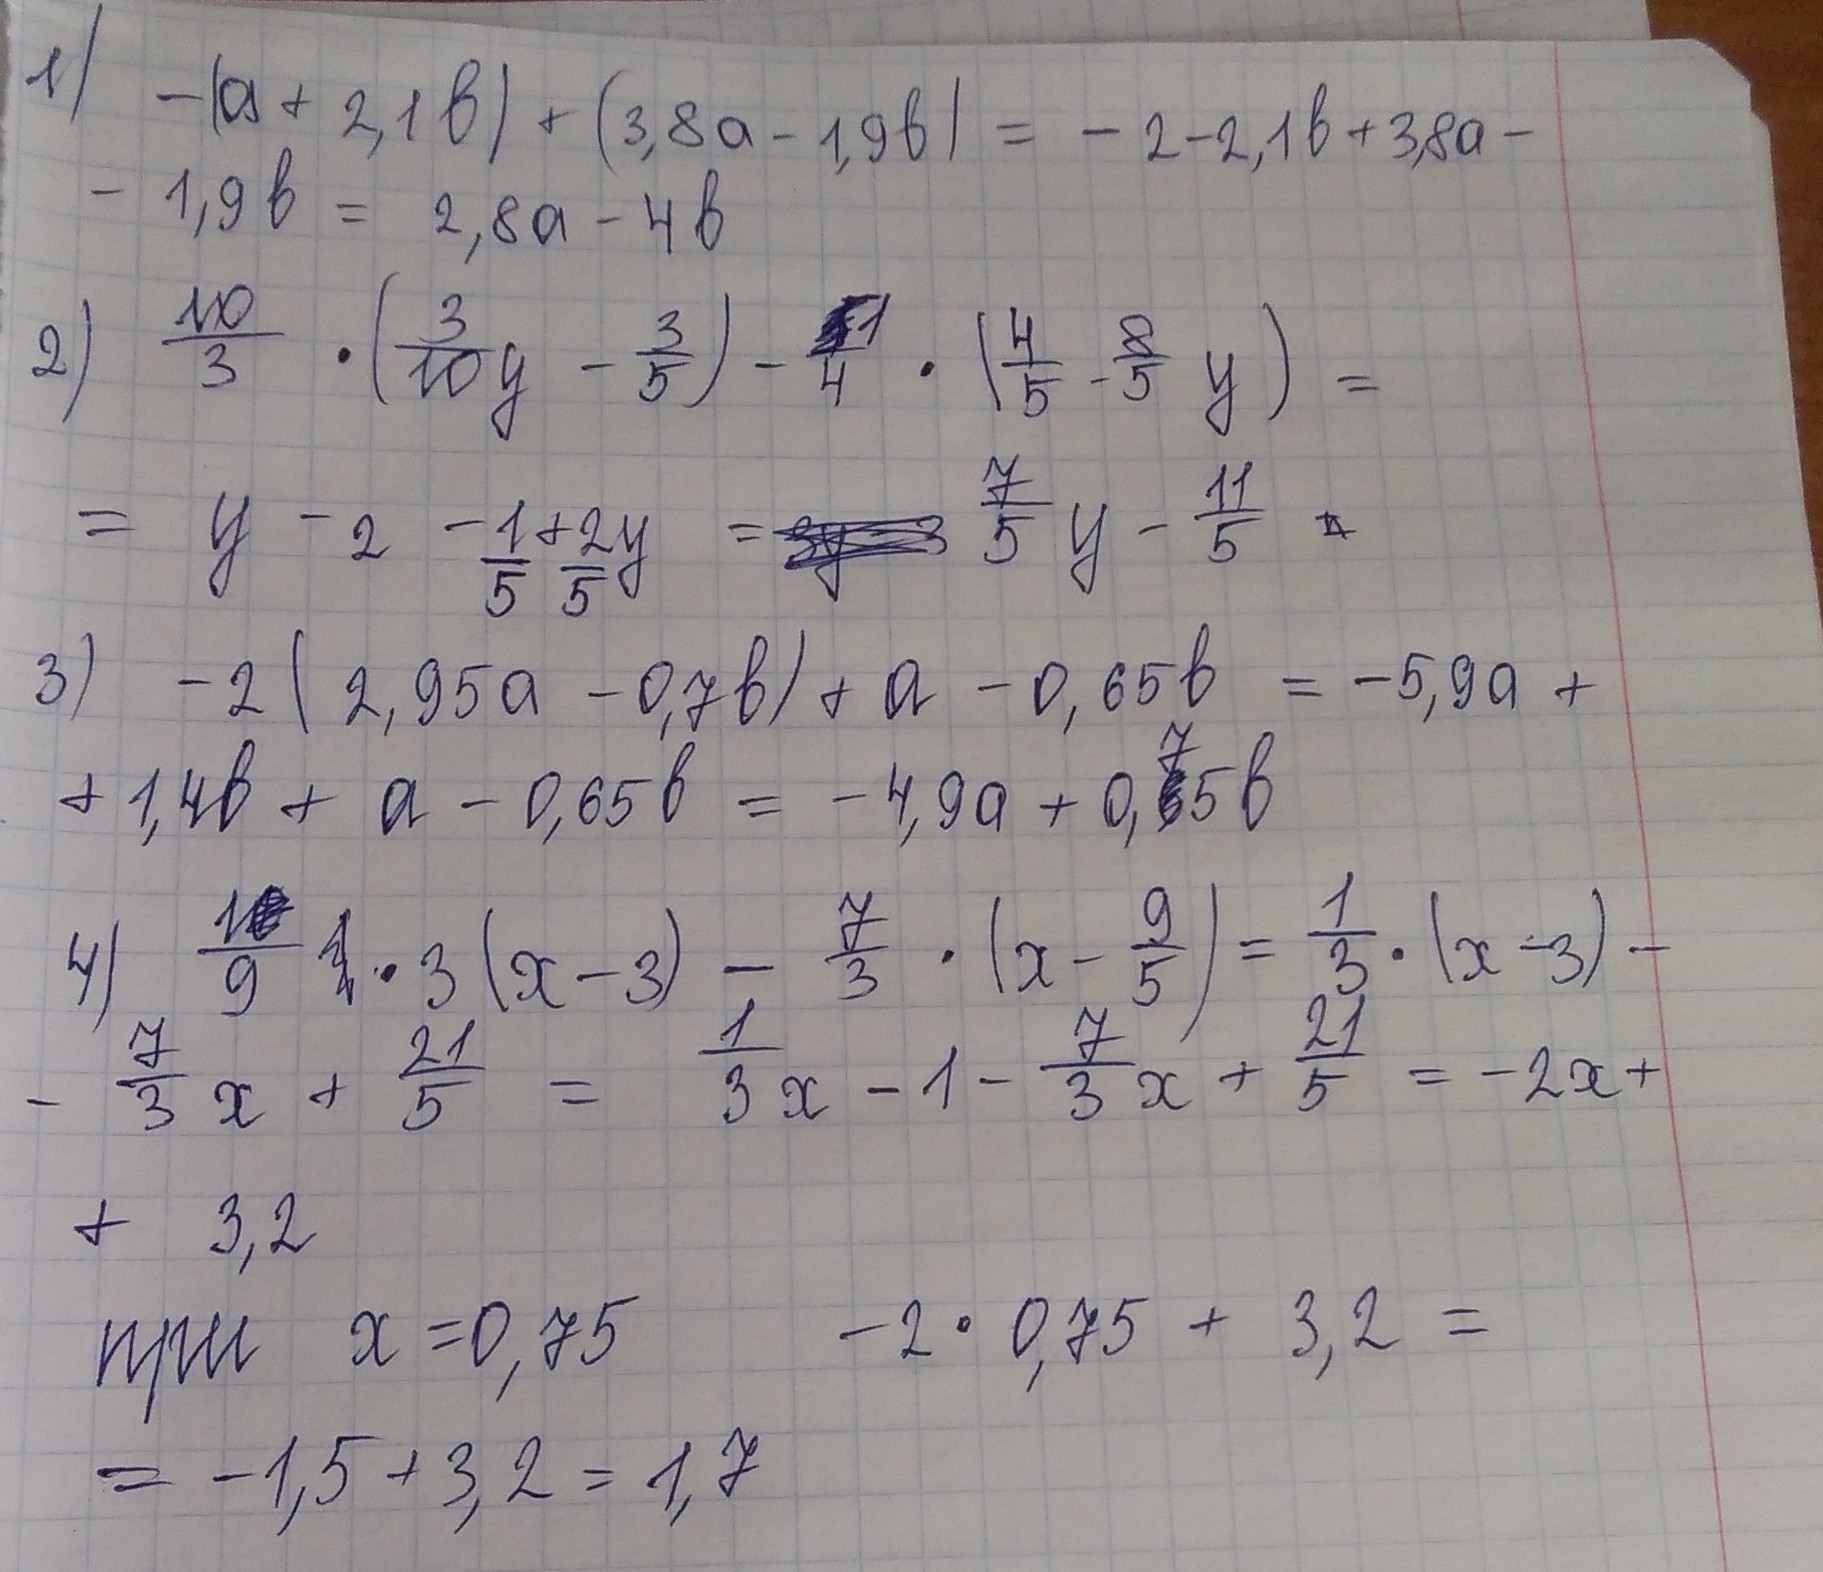 1) -(a + 2,1b) + (3,8a - 1,9b) = - 2 - 2,1b + 3,8a -
- 1,9b = 2,8a - 4b
2) 10/3 · (3/10 y - 3/5) - 1/4 · (4/5 - 8/5 y) =
= y - 2 - 1/5 + 2/5 y = 7/5 y - 11/5
3) -2(2,95a - 0,7b) + a - 0,65b = -5,9a +
+ 1,4b + a - 0,65b = -4,9a + 0,75b
4) 1/9 · 3(x - 3) - 7/3 · (x - 9/5) = 1/3 · (x - 3) -
- 7/3 x + 21/5 = 1/3 x - 1 - 7/3 x + 21/5 = -2x +
+ 3,2
при x = 0,75 -2 · 0,75 + 3,2 =
= -1,5 + 3,2 = 1,7